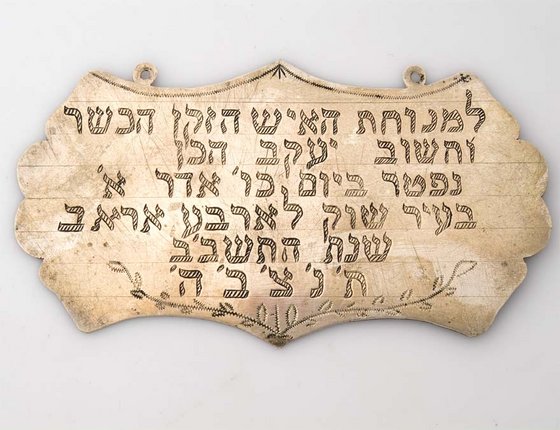 למנוחת האיש הזקן הכשר
והשוב יעקב הכן
נפטר ביום כו' אדר א'
בעיר שוק לארבע אריאב
שנת התשב׳ב
ת' נ' צ' ב' ה'